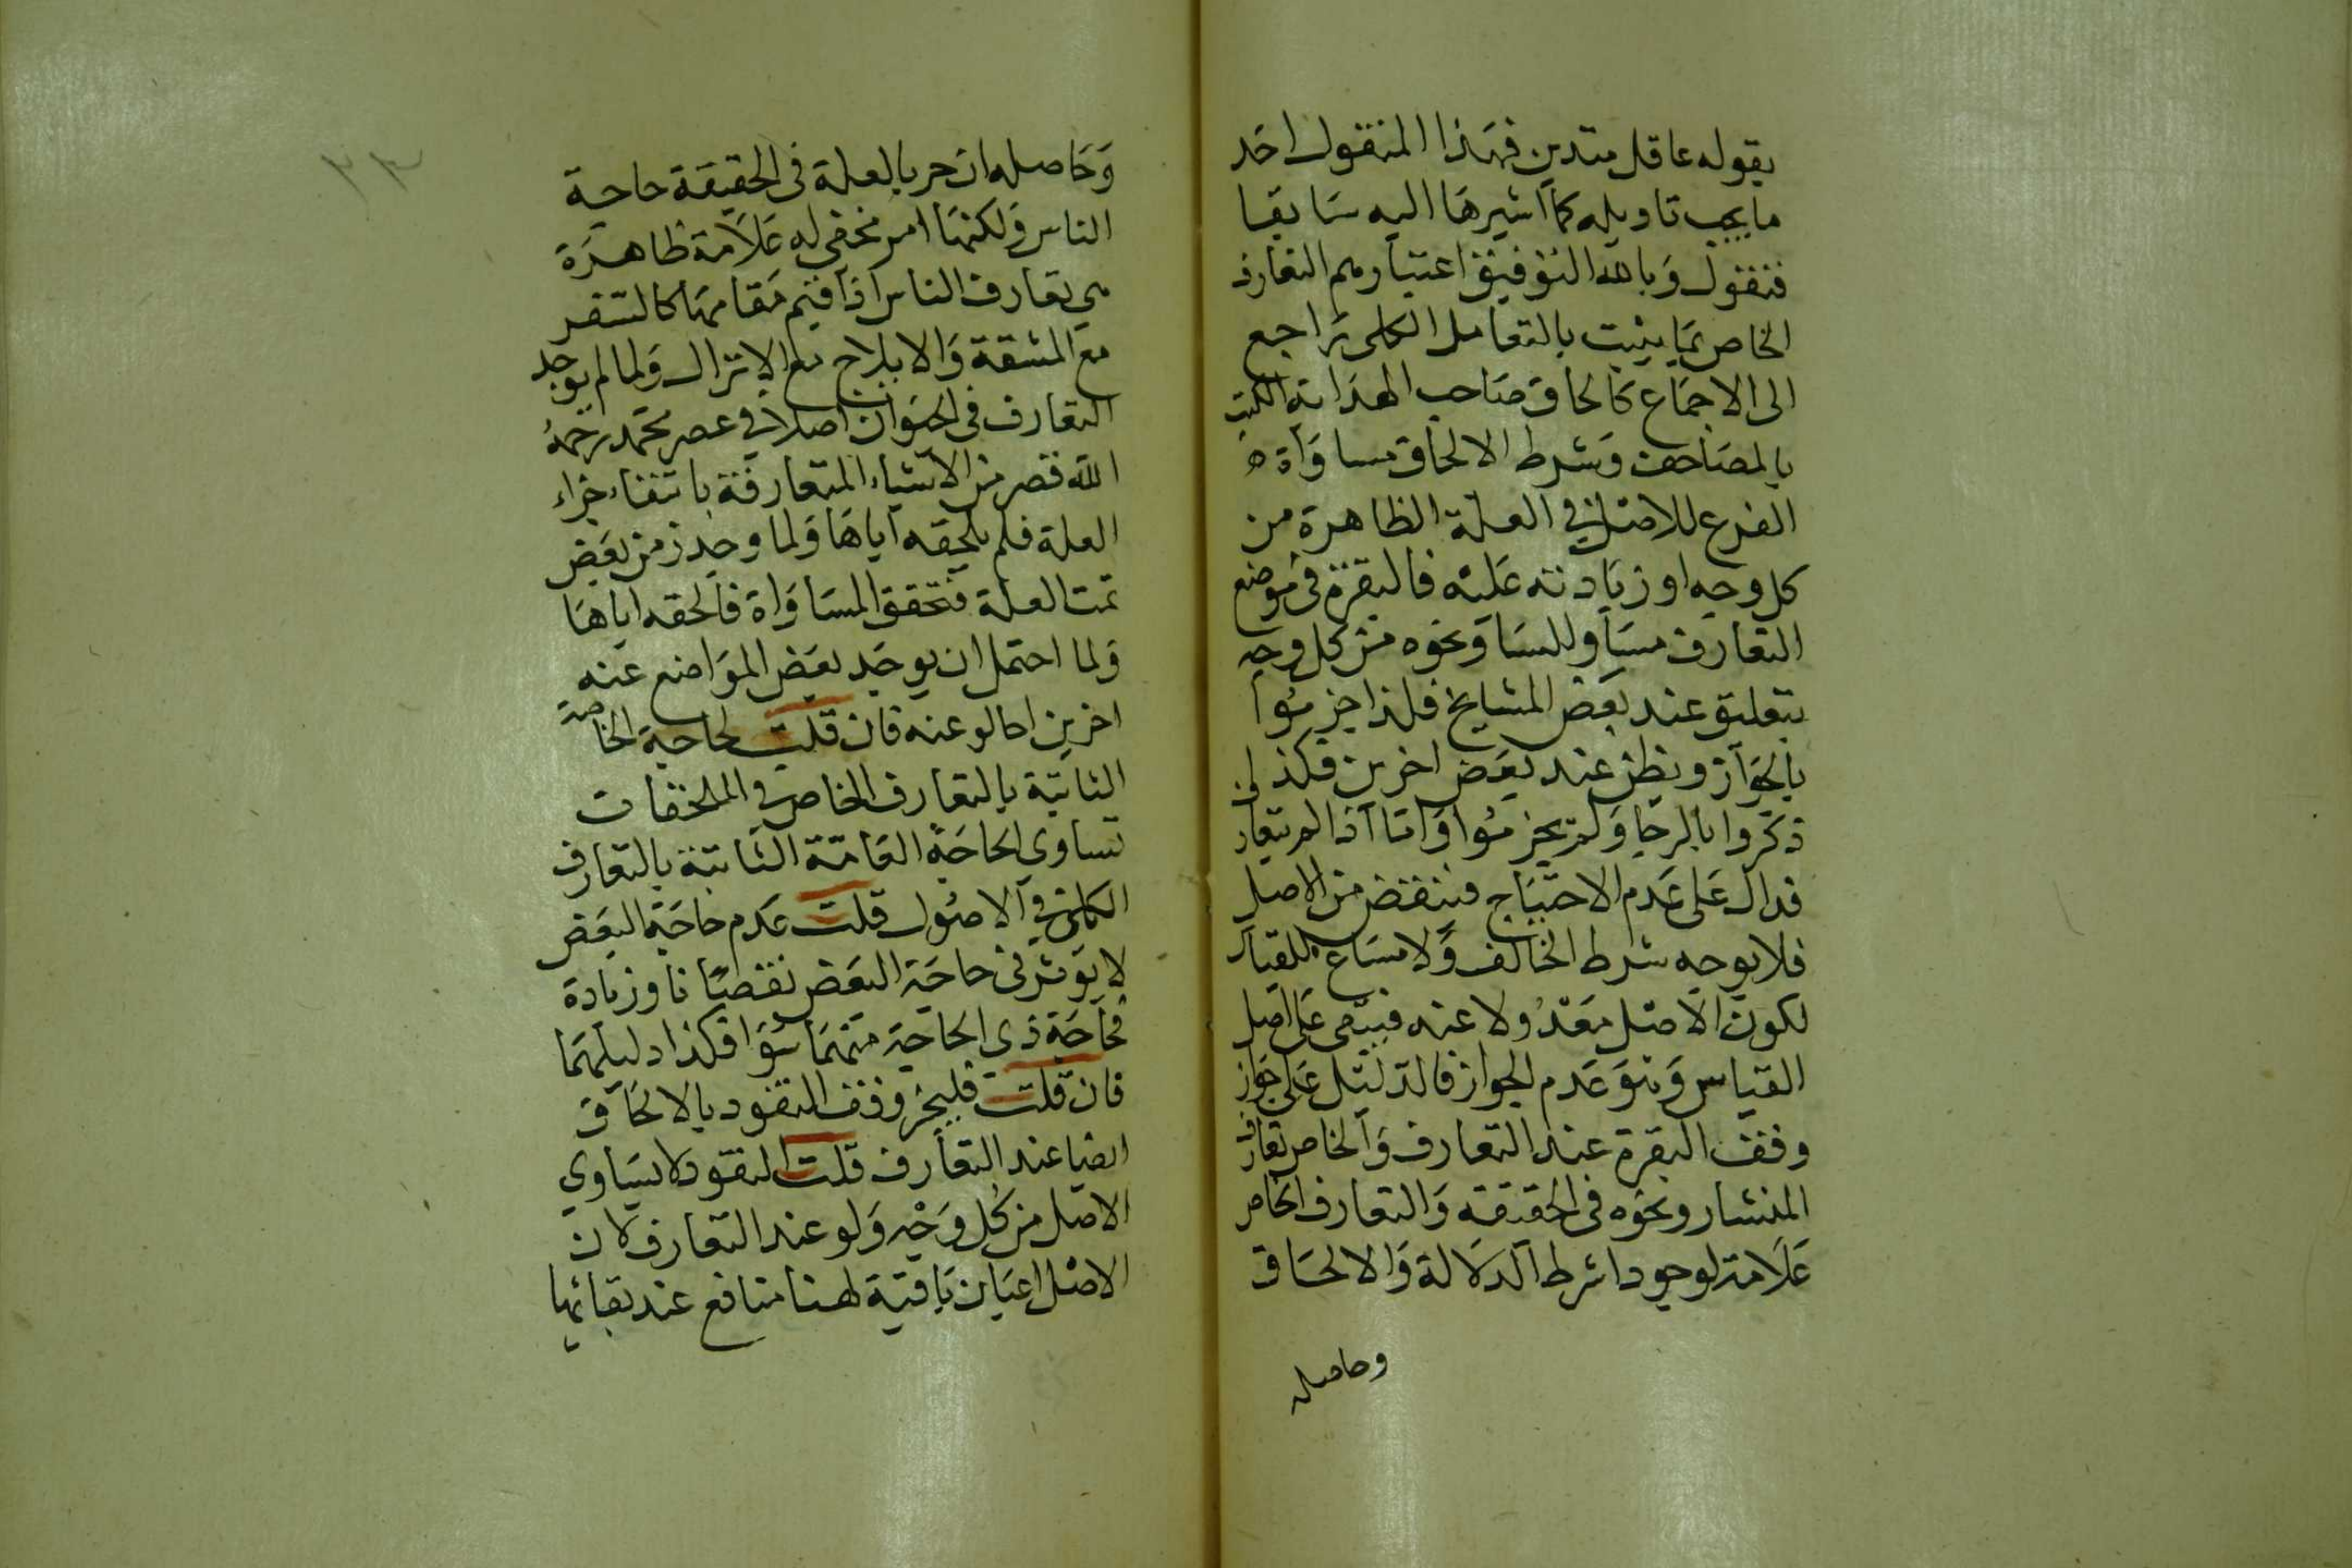 يقوله عاقل متدين فهذا المنقول احد
ما يجب تاويله كما اشيرها اليه سابقا
فنقول وبالله التوفيق اعتبارهم التعارف
الخاص بما يثبت بالتعامل الكلى راجع
الى الاجماع كالحاق صاحب الهداية الكتب
بالمصاحف وشرط الالحاق مساواة
الفرع للاصل في العلة الظاهرة من
كل وجه او زيادته عليه فالبقرة في موضع
التعارف مساو للسا ونحوه من كل وجه
بتعليق عند بعض المشايخ فلذا جزموا
بالجواز ويظن عند بعض اخرين فكذلى
ذكروا بالرجا ولم يجزموا واما اذا لم يتعار
فدال على عدم الاحتياج فينقض من الاصل
فلا يوجه شرط الخالف ولا مساع للقيا
لكون الاصل معدولا عنه فيبقى على اصل
القياس وهو عدم الجواز فالدليل على جواز
وقف البقرة عند التعارف والخاص تعارف
المنشار ونحوه في الحقيقة والتعارف الخاص
علامة لوجودا شرط الدلالة والالحاق
وحاصله
٣٣
وحاصله ان حر بالعلة فى الحقيقة حاجة
الناس ولكنها امر مخفى له علامة ظاهرة
هي تعارف الناس اذا قيم مقامها كالسفر
مع المشقة والايلاج مع الانزال ولما لم يوجد
التعارف في الحيوان اصلا في عصر محمد رحمه
الله قصر من الاشياء المتعارفة بانتفاء جزاء
العلة فلم يلحقه اياها ولما وجد زمن بعض
تمت العلة فتحقق المساواة فالحقه اياها
ولما احتمل ان يوجد بعض المواضع عنه
اخرين احالو عنه فان قلت لحاجة الخاصة
الثابتة بالتعارف الخاص في الملحقات
تساوي الحاجة العامة الثابتة بالتعارف
الكلى في الاصول قلت عدم حاجة البعض
لا يوثر في حاجة البعض نقصانا وزيادة
فحاجة ذي الحاجة منهما سوا فكذا دليلهما
فان قلت فليجز وقف النقود بالالحاق
ايضا عند التعارف قلت النقود لا يساوي
الاصل من كل وجه ولو عند التعارف لان
الاصل اعيان باقية لهنا منافع عند بقائها